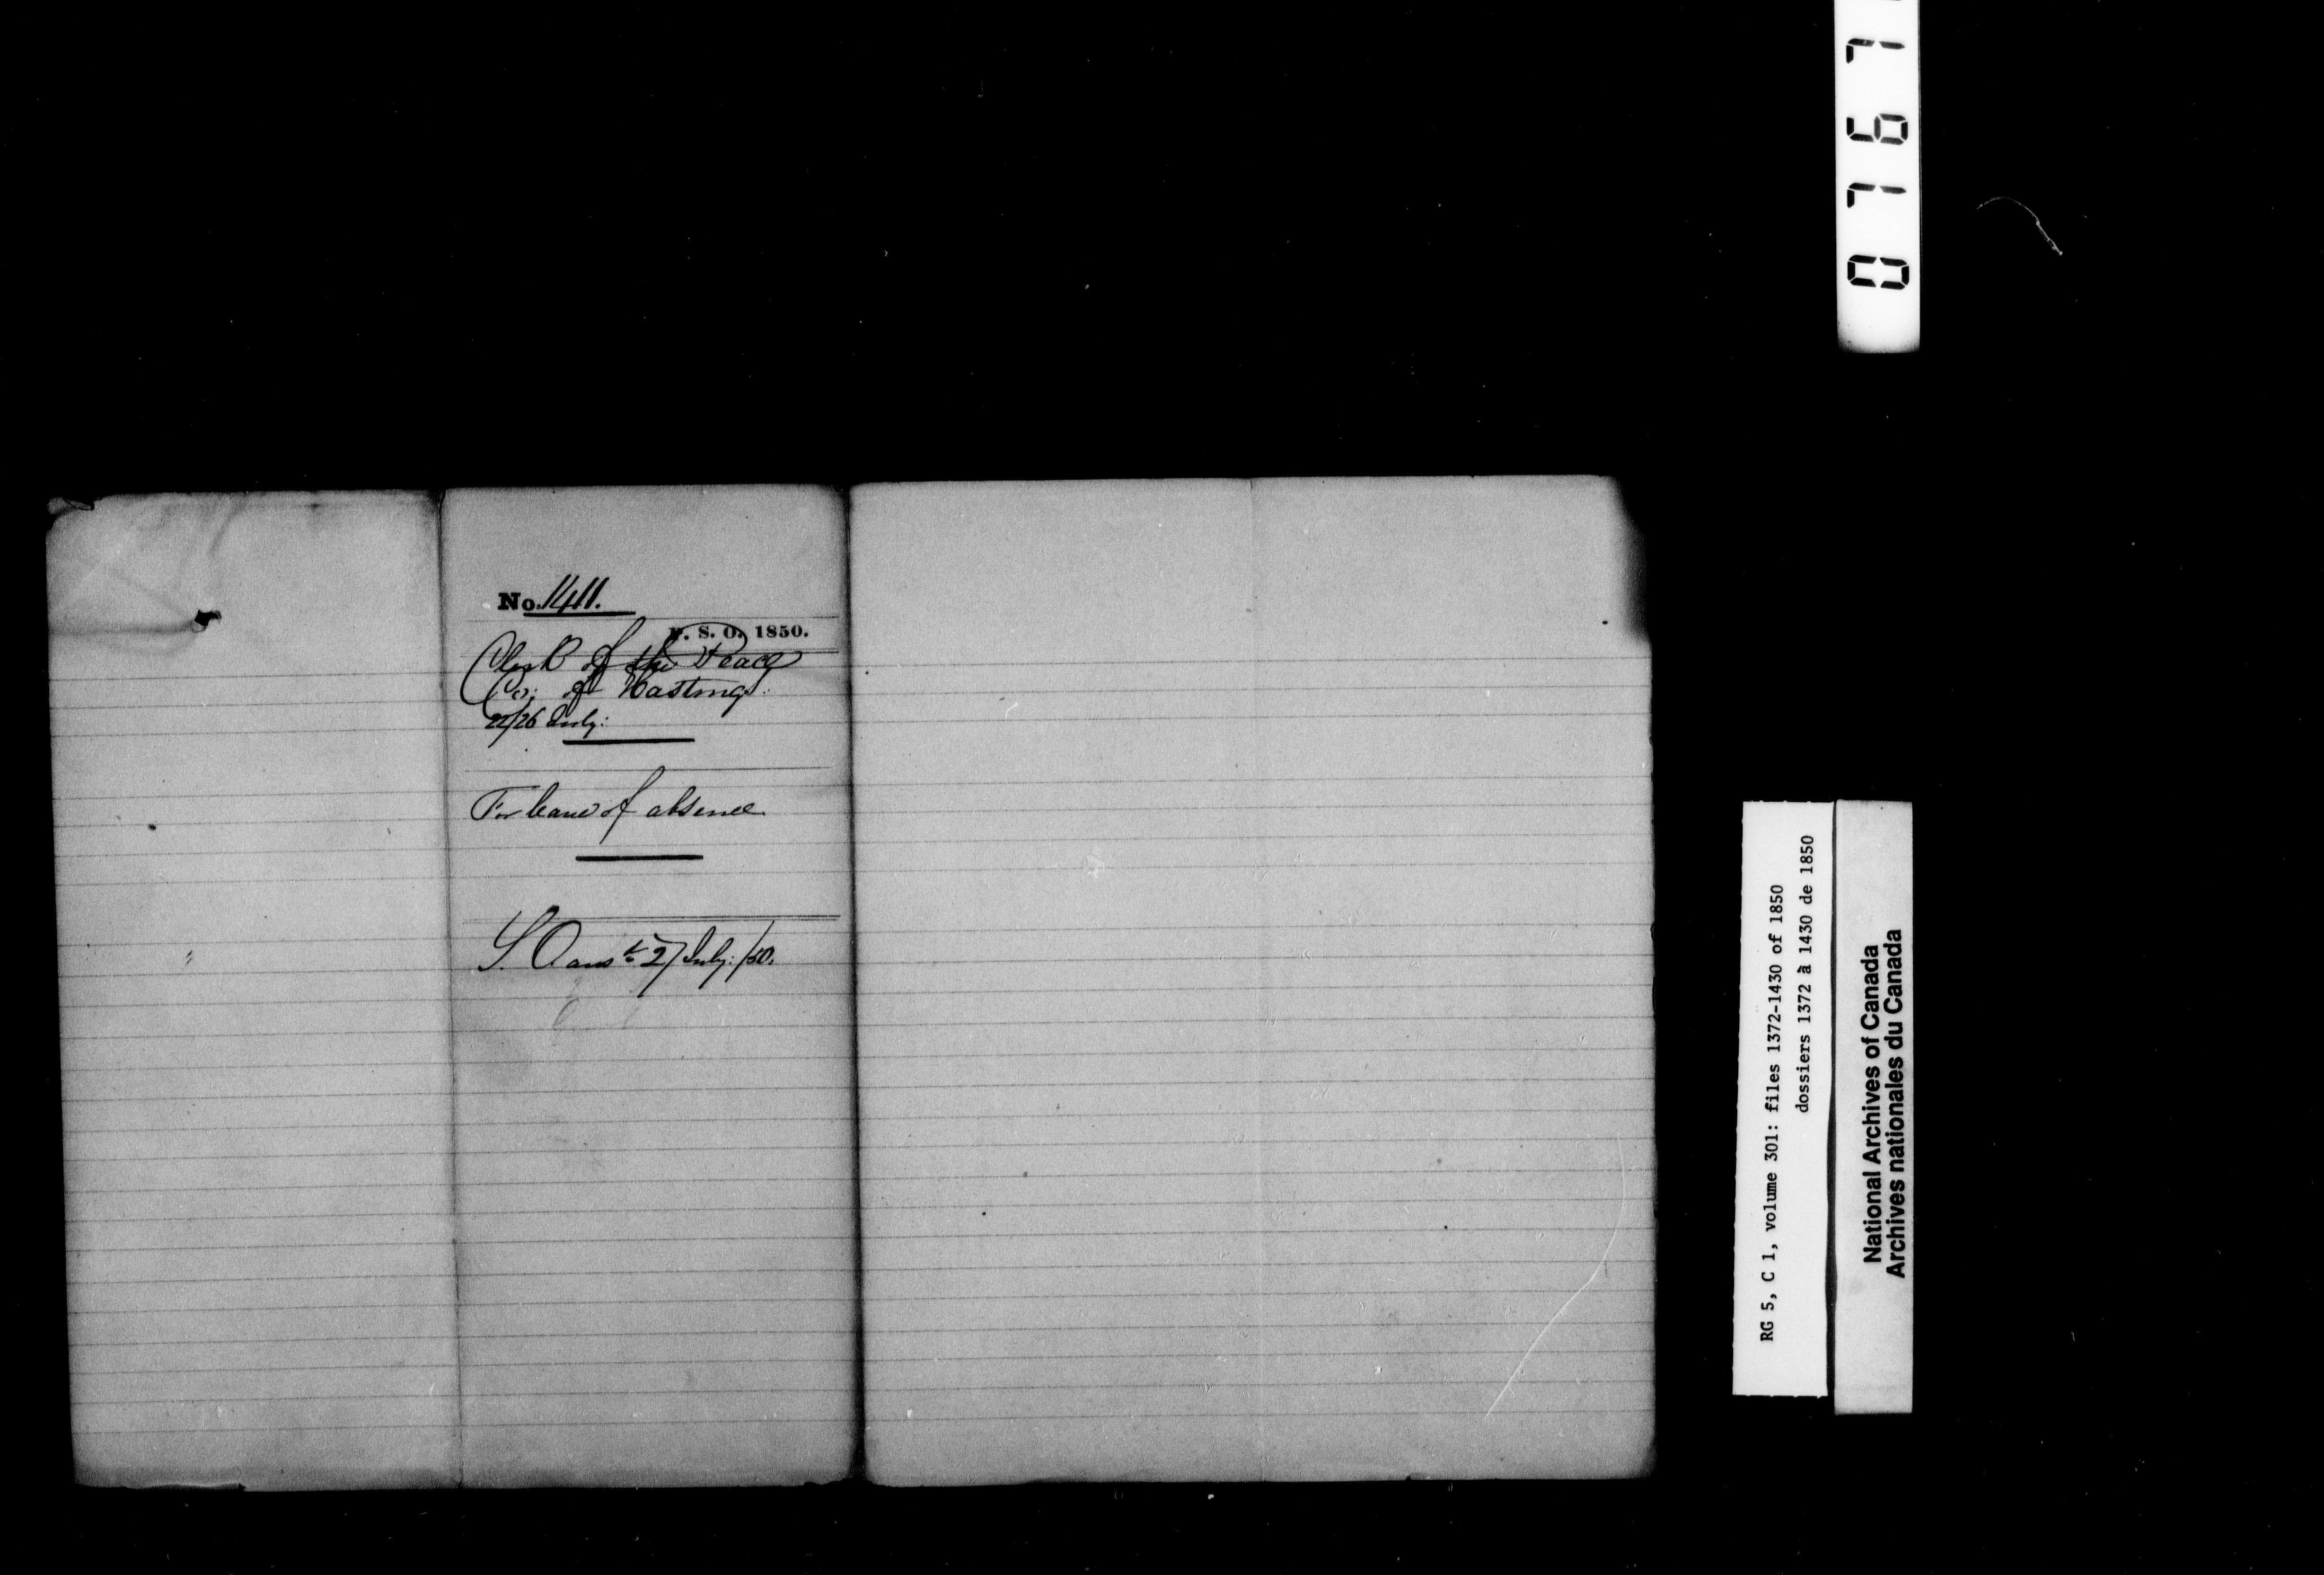 No. 1411.
P. S. O. 1850.
Clerk of the Peace
Co: of Hastings.
22/26 July:
For leave of absence.
27 July:/50.
0767
RG 5, C 1, volume 301: files 1372-1430 of 1850
dossiers 1372 à 1430 de 1850
National Archives of Canada
Archives nationales du Canada